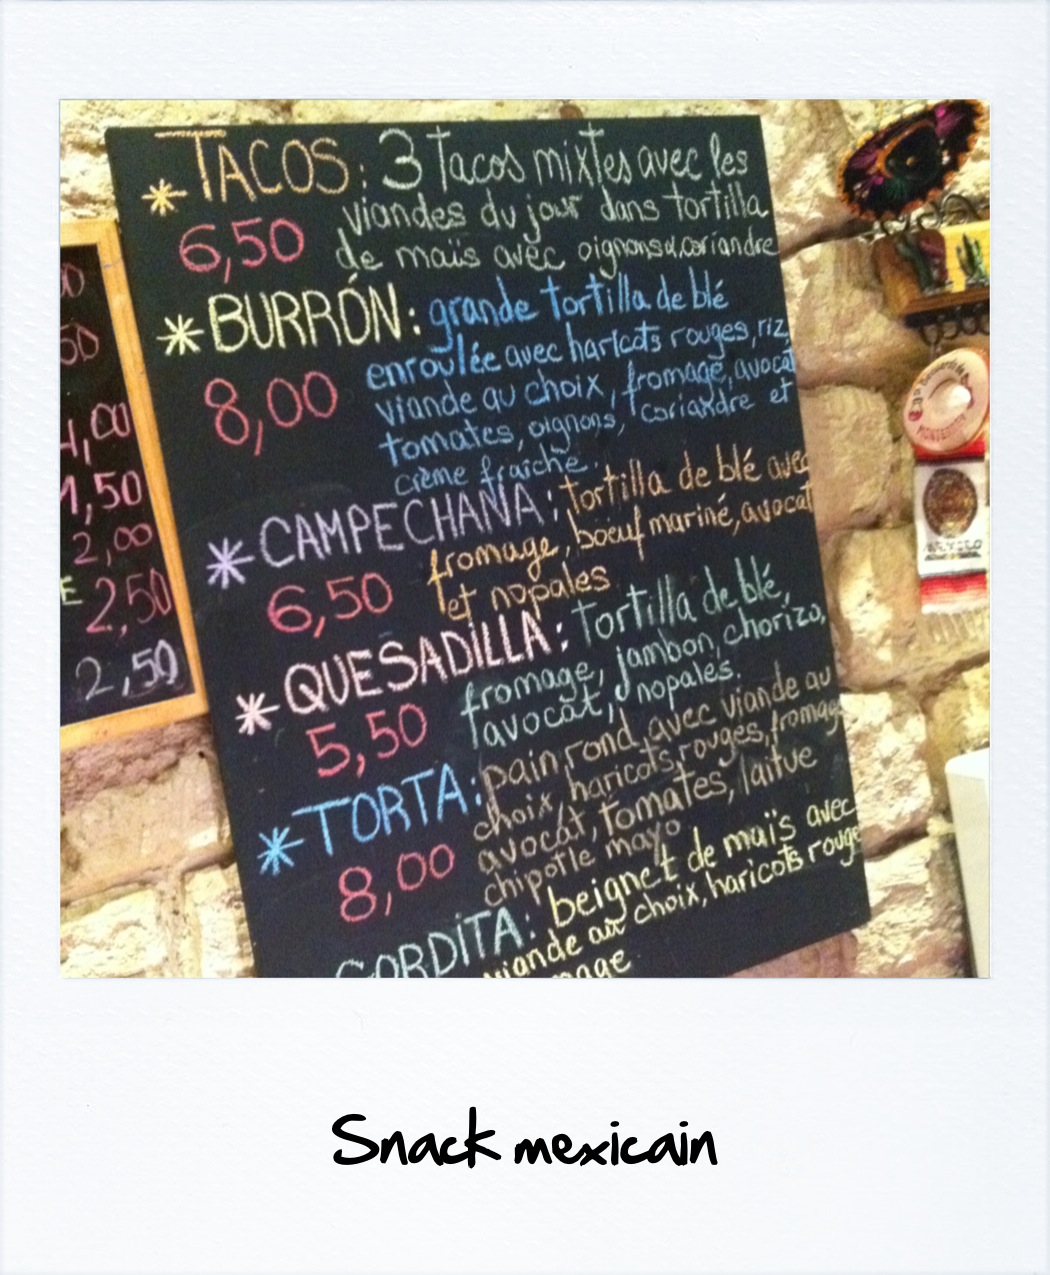 TACOS: 3 Tacos mixtes avec les
6,50 viandes du jour dans tortilla
de maïs avec oignons & coriandre
BURRÓN: grande tortilla de blé
enroulée avec haricots rouges, riz,
8,00 viande au choix, fromage, avocat
tomates, oignons, coriandre et
crème fraîche.
CAMPECHANA: tortilla de blé avec
fromage, boeuf mariné, avocat
6,50 et nopales
QUESADILLA: Tortilla de blé,
fromage, jambon, chorizo,
5,50 avocat, nopales.
TORTA: pain rond, avec viande au
choix, haricots rouges, fromage
8,00 avocat, tomates, laitue
chipotle mayo
GORDITA: beignet de maïs avec
viande au choix, haricots rouge
1,50
2,00
E 2,50
2,50
Snack mexicain